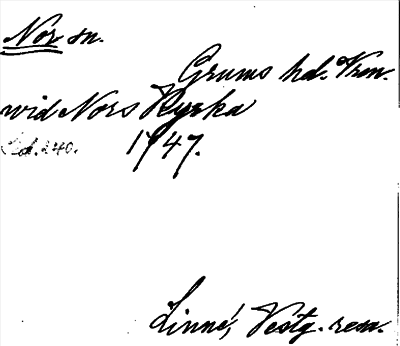 Nor sn.
Grums hd. Vrm.
wid Nors Kyrka
Sid. 240. 1747.
Linné, Vestg. resa.